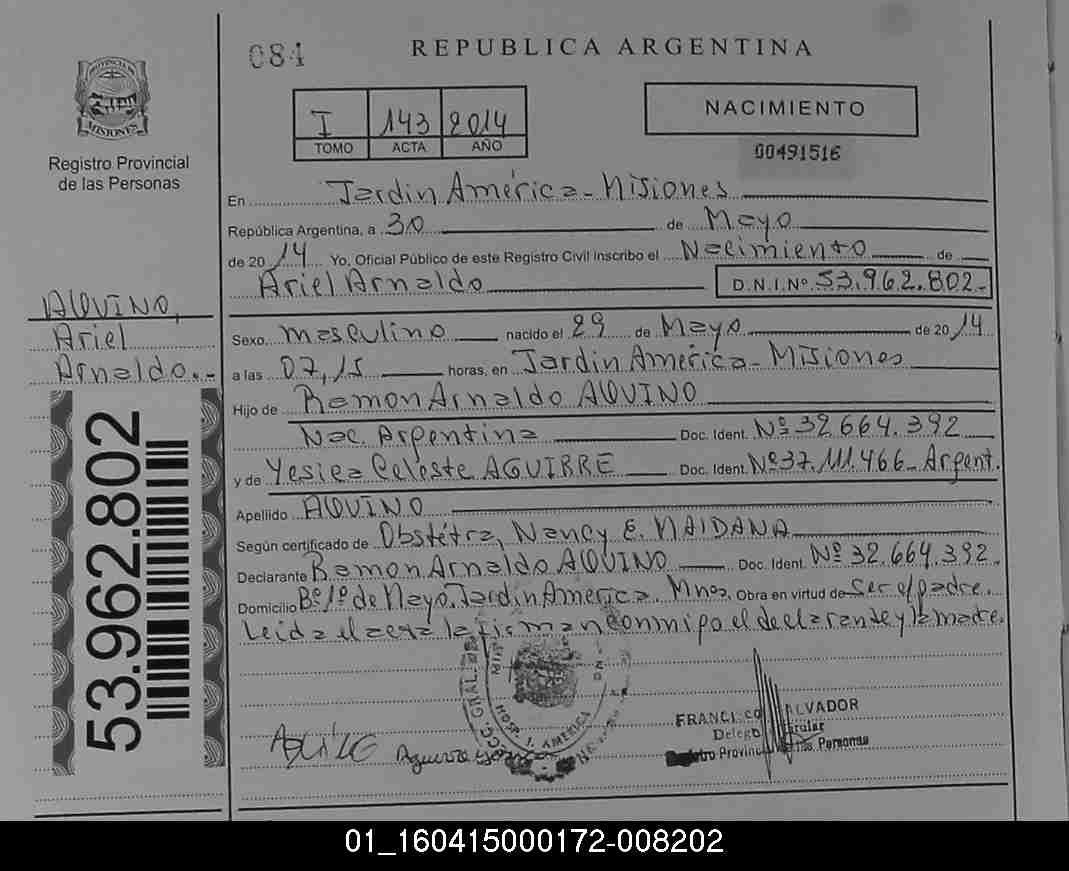 084
REPUBLICA ARGENTINA
PROVINCIA DE
MISIONES
Registro Provincial
de las Personas
I 143 2014
TOMO ACTA AÑO
NACIMIENTO
00491516
En Jardin América - Misiones
República Argentina, a 30 de Mayo
de 2014 Yo, Oficial Público de este Registro Civil inscribo el Nacimiento de
Ariel Arnaldo D.N.I.Nº 53.962.802.-
AQUINO,
Ariel
Arnaldo.-
53.962.802
Sexo masculino nacido el 29 de Mayo de 2014
a las 07,15 horas, en Jardin América - Misiones
Hijo de Ramon Arnaldo AQUINO
Nac. Argentina Doc. Ident. Nº 32.664.392
y de Yesica Celeste AGUIRRE Doc. Ident. Nº 37.111.466 - Argent.
Apellido AQUINO
Según certificado de Obstétra, Nancy E. MAIDANA
Declarante Ramon Arnaldo AQUINO Doc. Ident. Nº 32.664.392
Domicilio Bº 1º de Mayo. Jardin América. Mnes. Obra en virtud de ser el padre.
Leida el acta la firman conmigo el declarante y la madre.
HOSP. J. AMERICA
FRANCISCO ALVADOR
Deleg Titular
Registro Provinc Personas
01_160415000172-008202